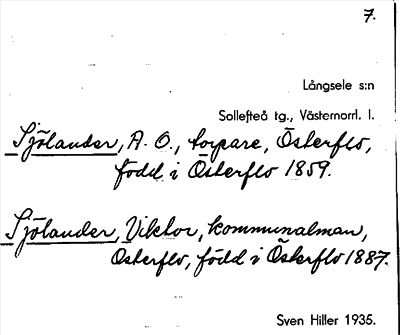 7.
Långsele s:n
Sollefteå tg., Västernorrl. l.
Sjölander, A. O., torpare, Österflo,
född i Österflo 1859.
Sjölander, Viktor, kommunalman,
Österflo, född i Österflo 1887.
Sven Hiller 1935.